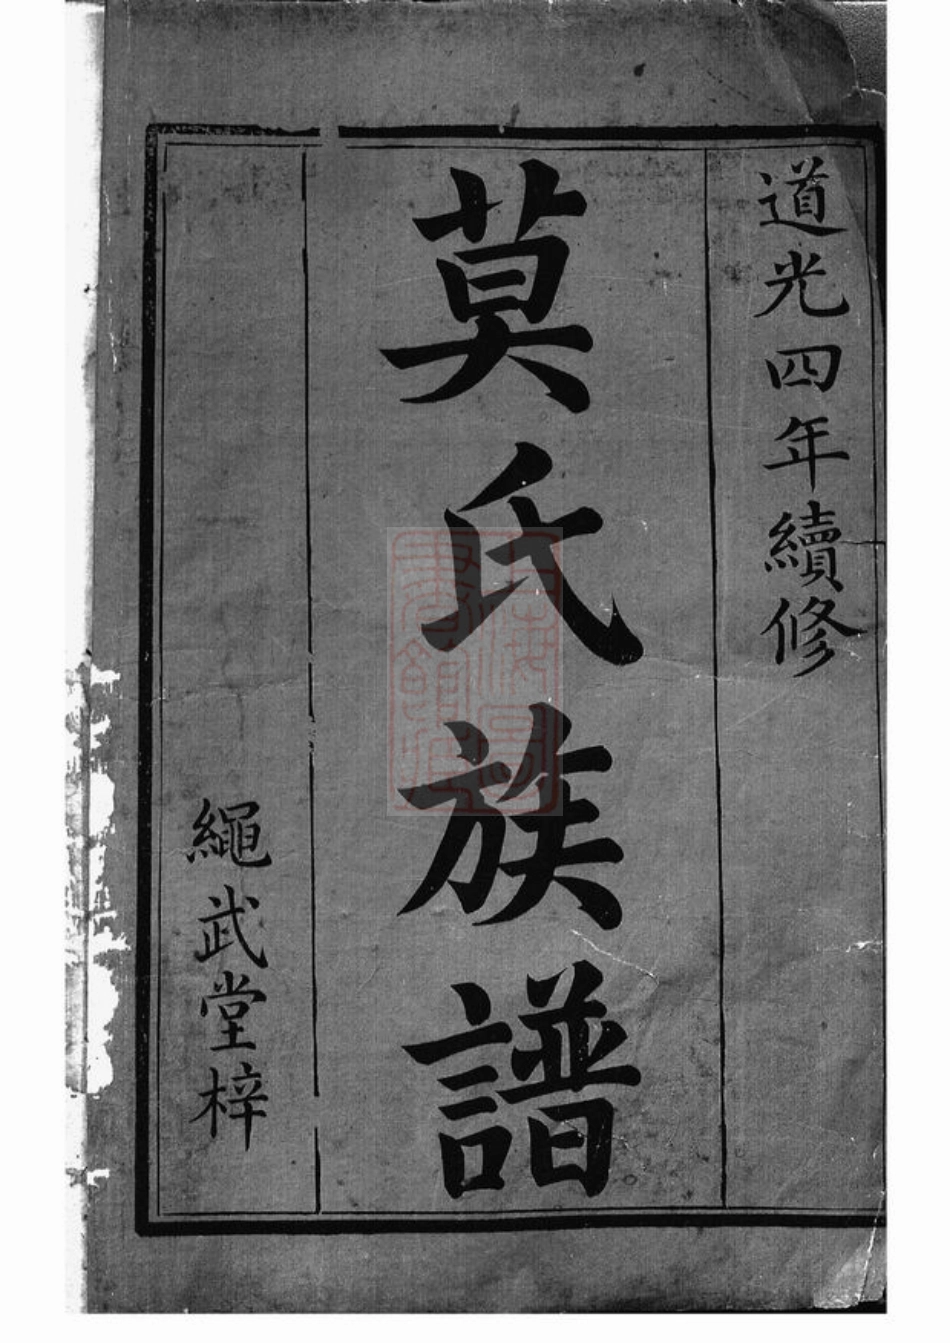 道光四年續修
莫氏族譜
繩武堂梓